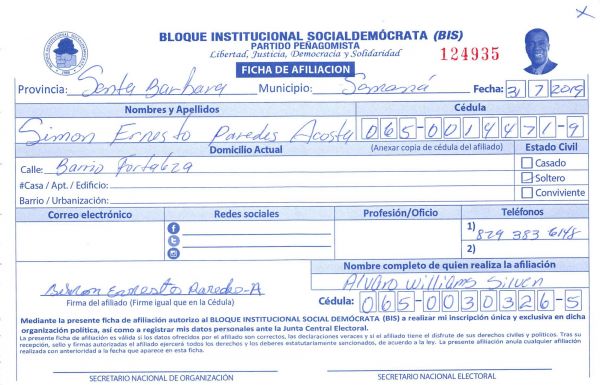 BLOQUE INSTITUCIONAL SOCIALDEMÓCRATA (BIS)
PARTIDO PEÑAGOMISTA
Libertad, Justicia, Democracia y Solidaridad
124935
FICHA DE AFILIACION
Provincia: Santa Barbara Municipio: Samaná Fecha: 31/7/2019
Nombres y Apellidos Cédula
Simon Ernesto Paredes Acosta 065-0014471-9
Domicilio Actual (Anexar copia de cédula del afiliado) Estado Civil
Calle: Barrio Fortaleza Casado
#Casa / Apt. / Edificio: Soltero
Barrio / Urbanización: Conviviente
Correo electrónico Redes sociales Profesión/Oficio Teléfonos
1) 829 383 6148
2)
Nombre completo de quien realiza la afiliación
Simon Ernesto Paredes-A Alvaro Williams Silven
Firma del afiliado (Firme igual que en la Cédula) Cédula: 065-0030326-5
Mediante la presente ficha de afiliación autorizo al BLOQUE INSTITUCIONAL SOCIAL DEMÓCRATA (BIS) a realizar mi inscripción única y exclusiva en dicha
organización política, así como a registrar mis datos personales ante la Junta Central Electoral.
La presente ficha de afiliación es válida si los datos ofrecidos por el afiliado son correctos, las declaraciones veraces y si el afiliado tiene el disfrute de sus derechos civiles y políticos. Tras su
recepción, sello y firmas autorizadas el afiliado ejercerá todos los derechos y los deberes estatutariamente sancionados, de acuerdo a la ley. La presente afiliación anula cualquier afiliación
realizada con anterioridad a la fecha que aparece en esta ficha.
SECRETARIO NACIONAL DE ORGANIZACIÓN SECRETARIO NACIONAL ELECTORAL